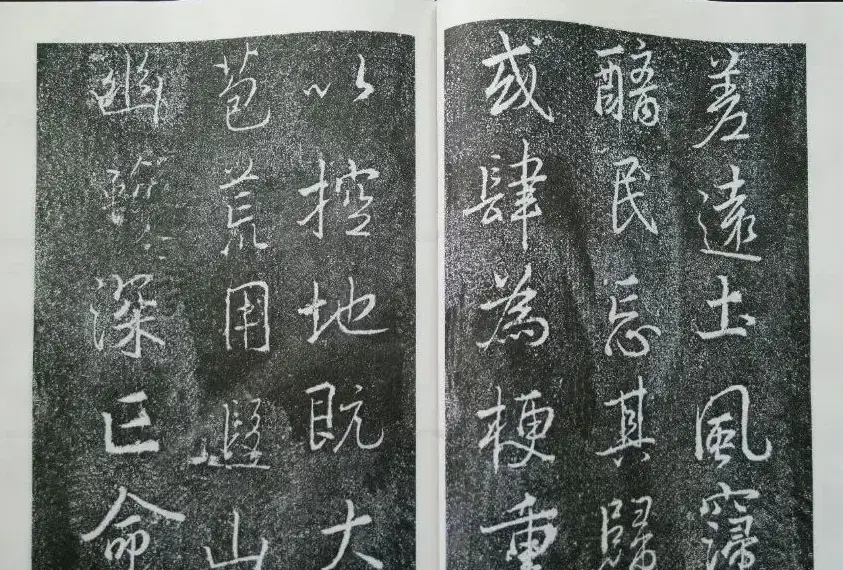 差遠土風
醨民忘其歸
或肆為梗重
以控地既大
苞荒用遐山
幽深已命